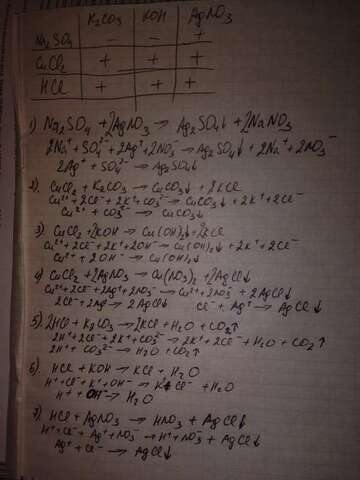 K₂CO₃ KOH AgNO₃
Na₂SO₄ - - +
CuCl₂ + + +
HCl + + +
1) Na₂SO₄ + 2AgNO₃ → Ag₂SO₄↓ + 2NaNO₃
2Na⁺ + SO₄²⁻ + 2Ag⁺ + 2NO₃⁻ → Ag₂SO₄↓ + 2Na⁺ + 2NO₃⁻
2Ag⁺ + SO₄²⁻ → Ag₂SO₄↓
2) CuCl₂ + K₂CO₃ → CuCO₃↓ + 2KCl
Cu²⁺ + 2Cl⁻ + 2K⁺ + CO₃²⁻ → CuCO₃↓ + 2K⁺ + 2Cl⁻
Cu²⁺ + CO₃²⁻ → CuCO₃↓
3) CuCl₂ + 2KOH → Cu(OH)₂↓ + 2KCl
Cu²⁺ + 2Cl⁻ + 2K⁺ + 2OH⁻ → Cu(OH)₂↓ + 2K⁺ + 2Cl⁻
Cu²⁺ + 2OH⁻ → Cu(OH)₂↓
4) CuCl₂ + 2AgNO₃ → Cu(NO₃)₂ + 2AgCl↓
Cu²⁺ + 2Cl⁻ + 2Ag⁺ + 2NO₃⁻ → Cu²⁺ + 2NO₃⁻ + 2AgCl↓
2Cl⁻ + 2Ag⁺ → 2AgCl↓ Cl⁻ + Ag⁺ → AgCl↓
5) 2HCl + K₂CO₃ → 2KCl + H₂O + CO₂↑
2H⁺ + 2Cl⁻ + 2K⁺ + CO₃²⁻ → 2K⁺ + 2Cl⁻ + H₂O + CO₂↑
2H⁺ + CO₃²⁻ → H₂O + CO₂↑
6) HCl + KOH → KCl + H₂O
H⁺ + Cl⁻ + K⁺ + OH⁻ → K⁺ + Cl⁻ + H₂O
H⁺ + OH⁻ → H₂O
7) HCl + AgNO₃ → HNO₃ + AgCl↓
H⁺ + Cl⁻ + Ag⁺ + NO₃⁻ → H⁺ + NO₃⁻ + AgCl↓
Ag⁺ + Cl⁻ → AgCl↓